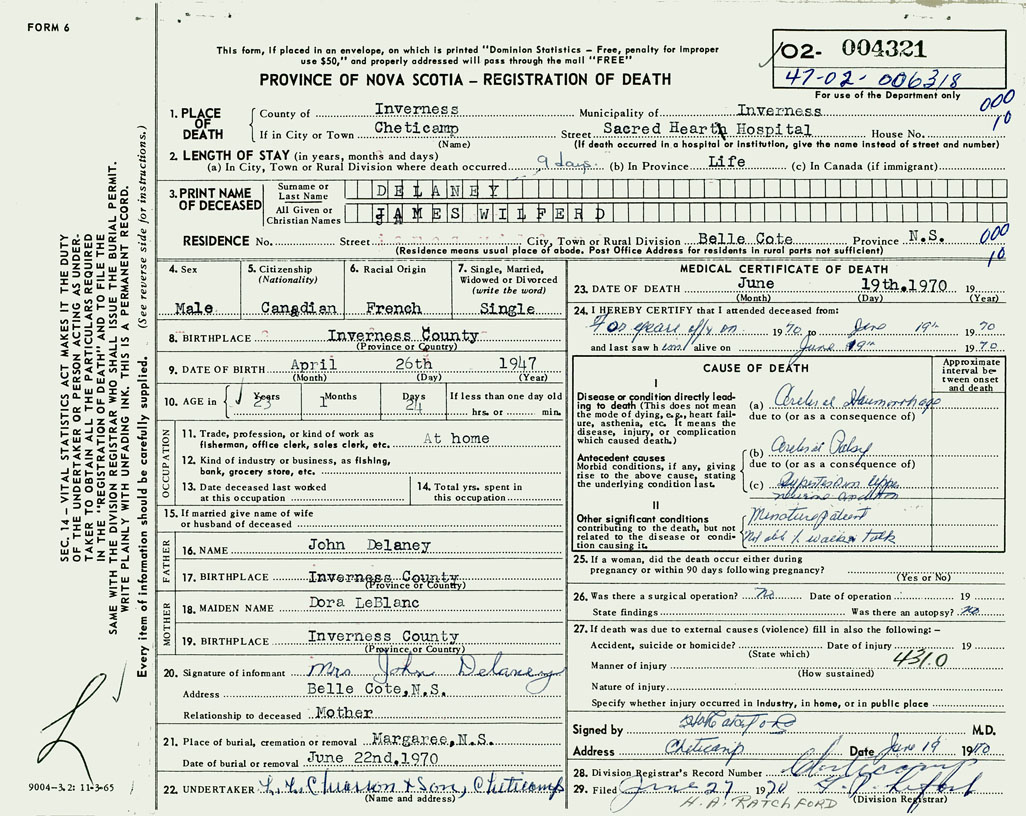 FORM 6
This form, if placed in an envelope, on which is printed "Dominion Statistics – Free, penalty for improper
use $50," and properly addressed will pass through the mail "FREE"
PROVINCE OF NOVA SCOTIA – REGISTRATION OF DEATH
02- 004321
47-02-006318
For use of the Department only
000
10
1. PLACE OF DEATH
County of Inverness Municipality of Inverness
If in City or Town Cheticamp Street Sacred Heart Hospital House No.
(Name) (If death occurred in a hospital or institution, give the name instead of street and number)
2. LENGTH OF STAY (in years, months and days)
(a) In City, Town or Rural Division where death occurred 9 days. (b) In Province Life (c) In Canada (if immigrant)
3. PRINT NAME OF DECEASED
Surname or Last Name DELANEY
All Given or Christian Names JAMES WILFERD
RESIDENCE No. Street City, Town or Rural Division Belle Cote Province N.S.
(Residence means usual place of abode. Post Office Address for residents in rural parts not sufficient)
000
10
4. Sex
Male
5. Citizenship
(Nationality)
Canadian
6. Racial Origin
French
7. Single, Married,
Widowed or Divorced
(write the word)
Single
8. BIRTHPLACE Inverness County
(Province or Country)
9. DATE OF BIRTH April 26th 1947
(Month) (Day) (Year)
10. AGE in Years Months Days If less than one day old
23 1 24 hrs. or min.
OCCUPATION
11. Trade, profession, or kind of work as
fisherman, office clerk, sales clerk, etc. At home
12. Kind of industry or business, as fishing,
bank, grocery store, etc.
13. Date deceased last worked
at this occupation
14. Total yrs. spent in
this occupation
15. If married give name of wife
or husband of deceased
FATHER
16. NAME John Delaney
17. BIRTHPLACE Inverness County
(Province or Country)
MOTHER
18. MAIDEN NAME Dora LeBlanc
19. BIRTHPLACE Inverness County
(Province or Country)
20. Signature of informant Mrs John Delaney
Address Belle Cote,N.S.
Relationship to deceased Mother
21. Place of burial, cremation or removal Margaree,N.S.
Date of burial or removal June 22nd.1970
22. UNDERTAKER & Son, Cheticamp
(Name and address)
MEDICAL CERTIFICATE OF DEATH
23. DATE OF DEATH June 19th.1970 19
(Month) (Day) (Year)
24. I HEREBY CERTIFY that I attended deceased from:
For years off & on 1970 to June 19th 1970
and last saw him alive on June 19th 1970
CAUSE OF DEATH
Approximate
interval between onset
and death
I
Disease or condition directly leading to death (This does not
mean the mode of dying, e.g., heart failure, asthenia, etc. It means the
disease, injury, or complication
which caused death.)
(a) Cerebral Haemorrhage
due to (or as a consequence of)
Antecedent causes
Morbid conditions, if any, giving
rise to the above cause, stating
the underlying condition last.
(b) Cerebral Palsy
due to (or as a consequence of)
(c)
II
Other significant conditions
contributing to the death, but not
related to the disease or condition causing it.
patient
Not able to walk or talk
25. If a woman, did the death occur either during
pregnancy or within 90 days following pregnancy?
(Yes or No)
26. Was there a surgical operation? No Date of operation 19
State findings Was there an autopsy? No
27. If death was due to external causes (violence) fill in also the following:–
Accident, suicide or homicide? Date of injury 19
(State which)
4310
Manner of injury
(How sustained)
Nature of injury
Specify whether injury occurred in Industry, in home, or in public place
Signed by M.D.
Address Cheticamp Date June 19 1970
28. Division Registrar's Record Number Cheticamp
29. Filed June 27 1970
(Division Registrar)
H.A. RATCHFORD
SEC. 14 – VITAL STATISTICS ACT MAKES IT THE DUTY
OF THE UNDERTAKER OR PERSON ACTING AS UNDERTAKER TO OBTAIN ALL THE PARTICULARS REQUIRED
IN THE "REGISTRATION OF DEATH" AND TO FILE THE
SAME WITH THE DIVISION REGISTRAR WHO SHALL ISSUE THE BURIAL PERMIT.
WRITE PLAINLY WITH UNFADING INK. THIS IS A PERMANENT RECORD.
Every item of information should be carefully supplied. (See reverse side for instructions.)
9004-3.2: 11-3-65